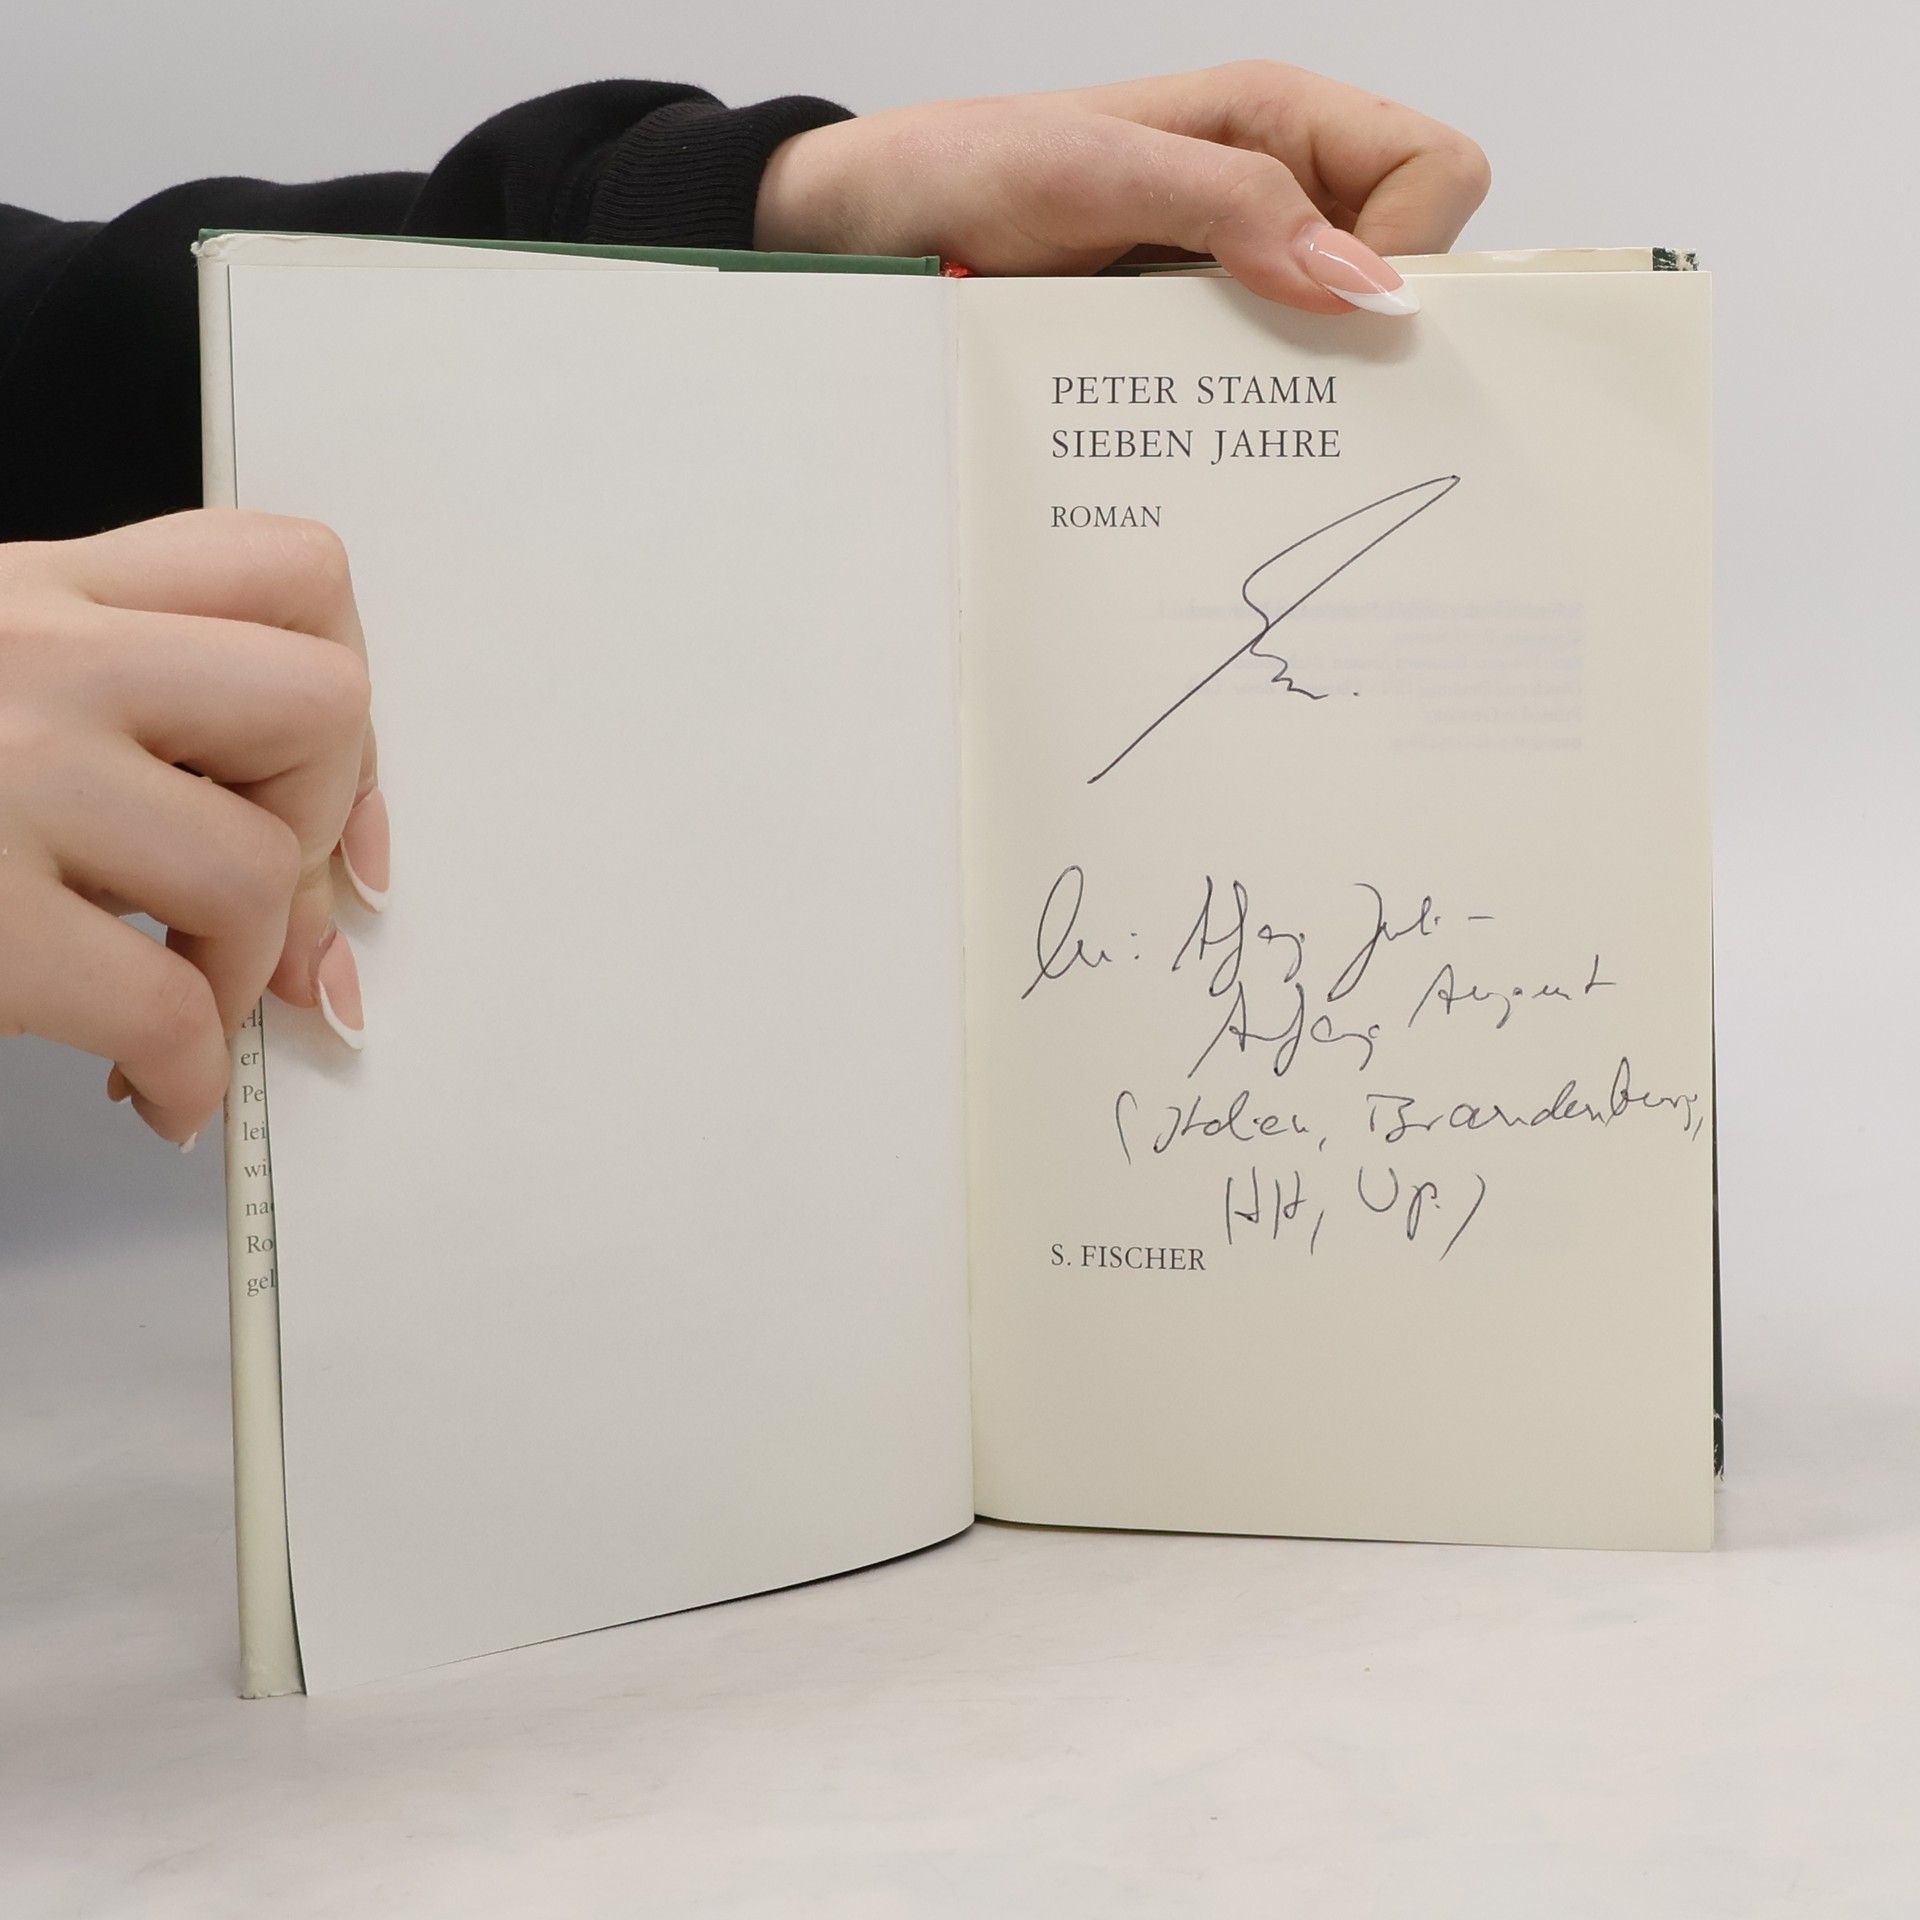 Ha
er
Pe
lei
wi
na
Ro
gel
PETER STAMM
SIEBEN JAHRE
ROMAN
Anfang Juli –
Anfang August
(Italien, Brandenburg,
HH, Up.)
S. FISCHER